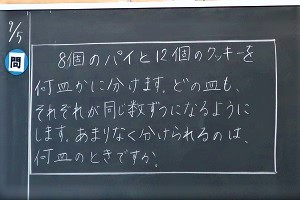 9/5
問
8個のパイと12個のクッキーを
何皿かに分けます。どの皿も、
それぞれが同じ数ずつになるように
します。あまりなく分けられるのは、
何皿のときですか。